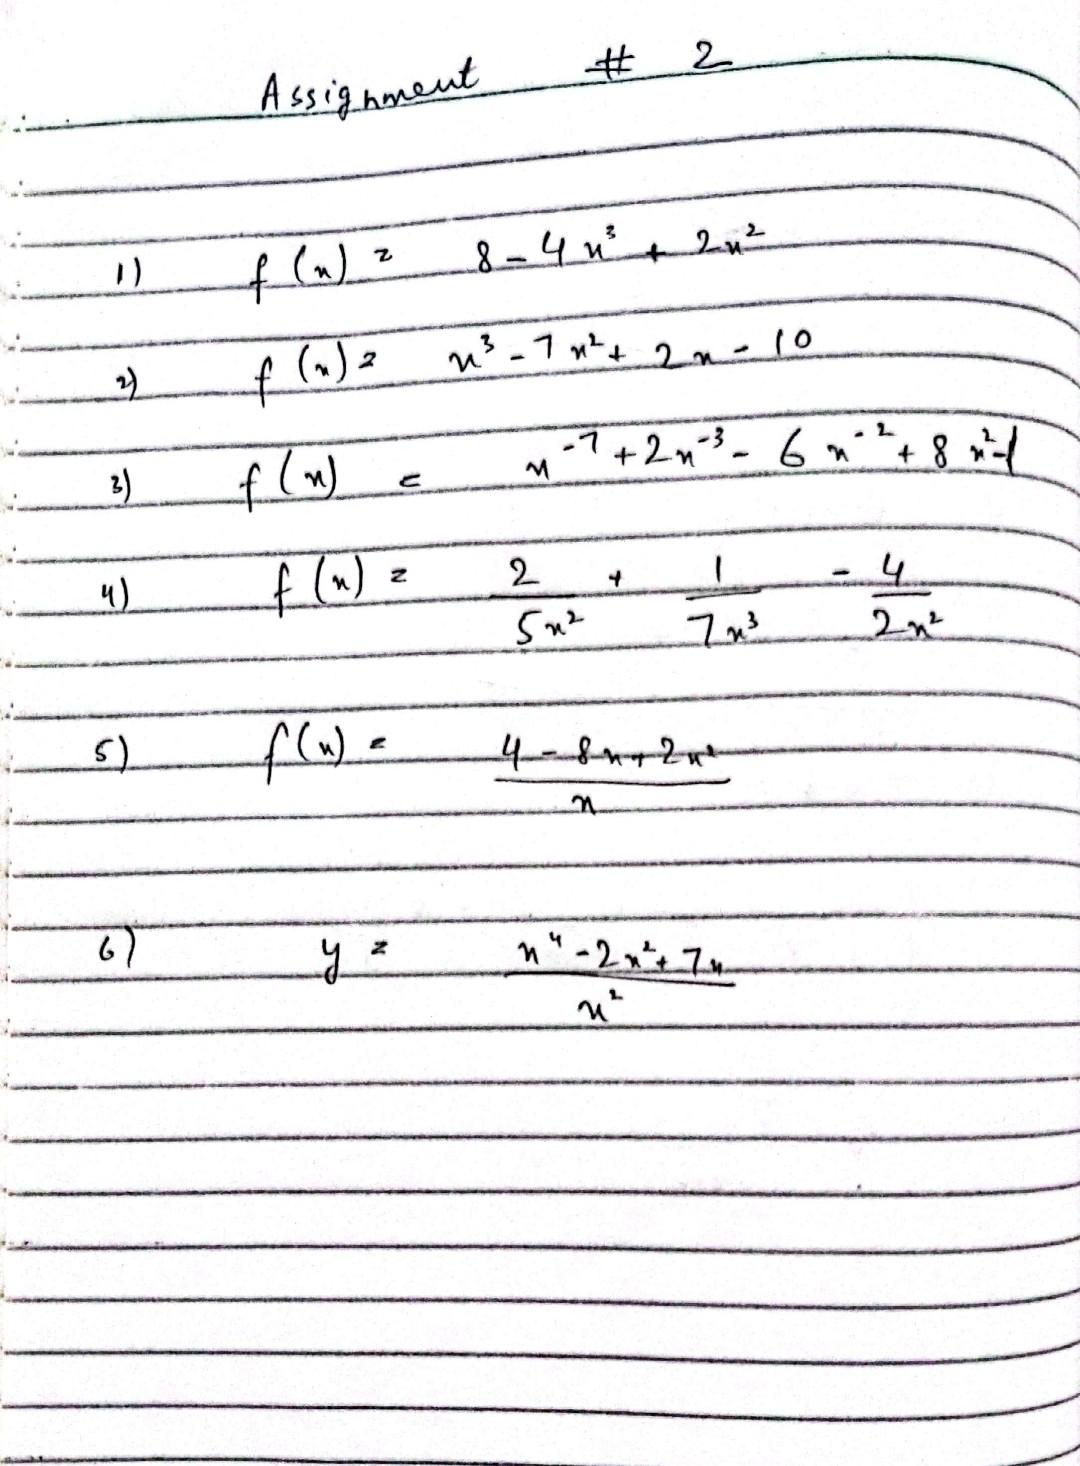 Assignment # 2
1) f(x) = 8 - 4x³ + 2x²
2) f(x) = x³ - 7x² + 2x - 10
3) f(x) = x⁻⁷ + 2x⁻³ - 6x⁻² + 8x² - 1
4) f(x) = 2/5x² + 1/7x³ - 4/2x²
5) f(x) = 4 - 8x + 2x² / x
6) y = x⁴ - 2x² + 7x / x²